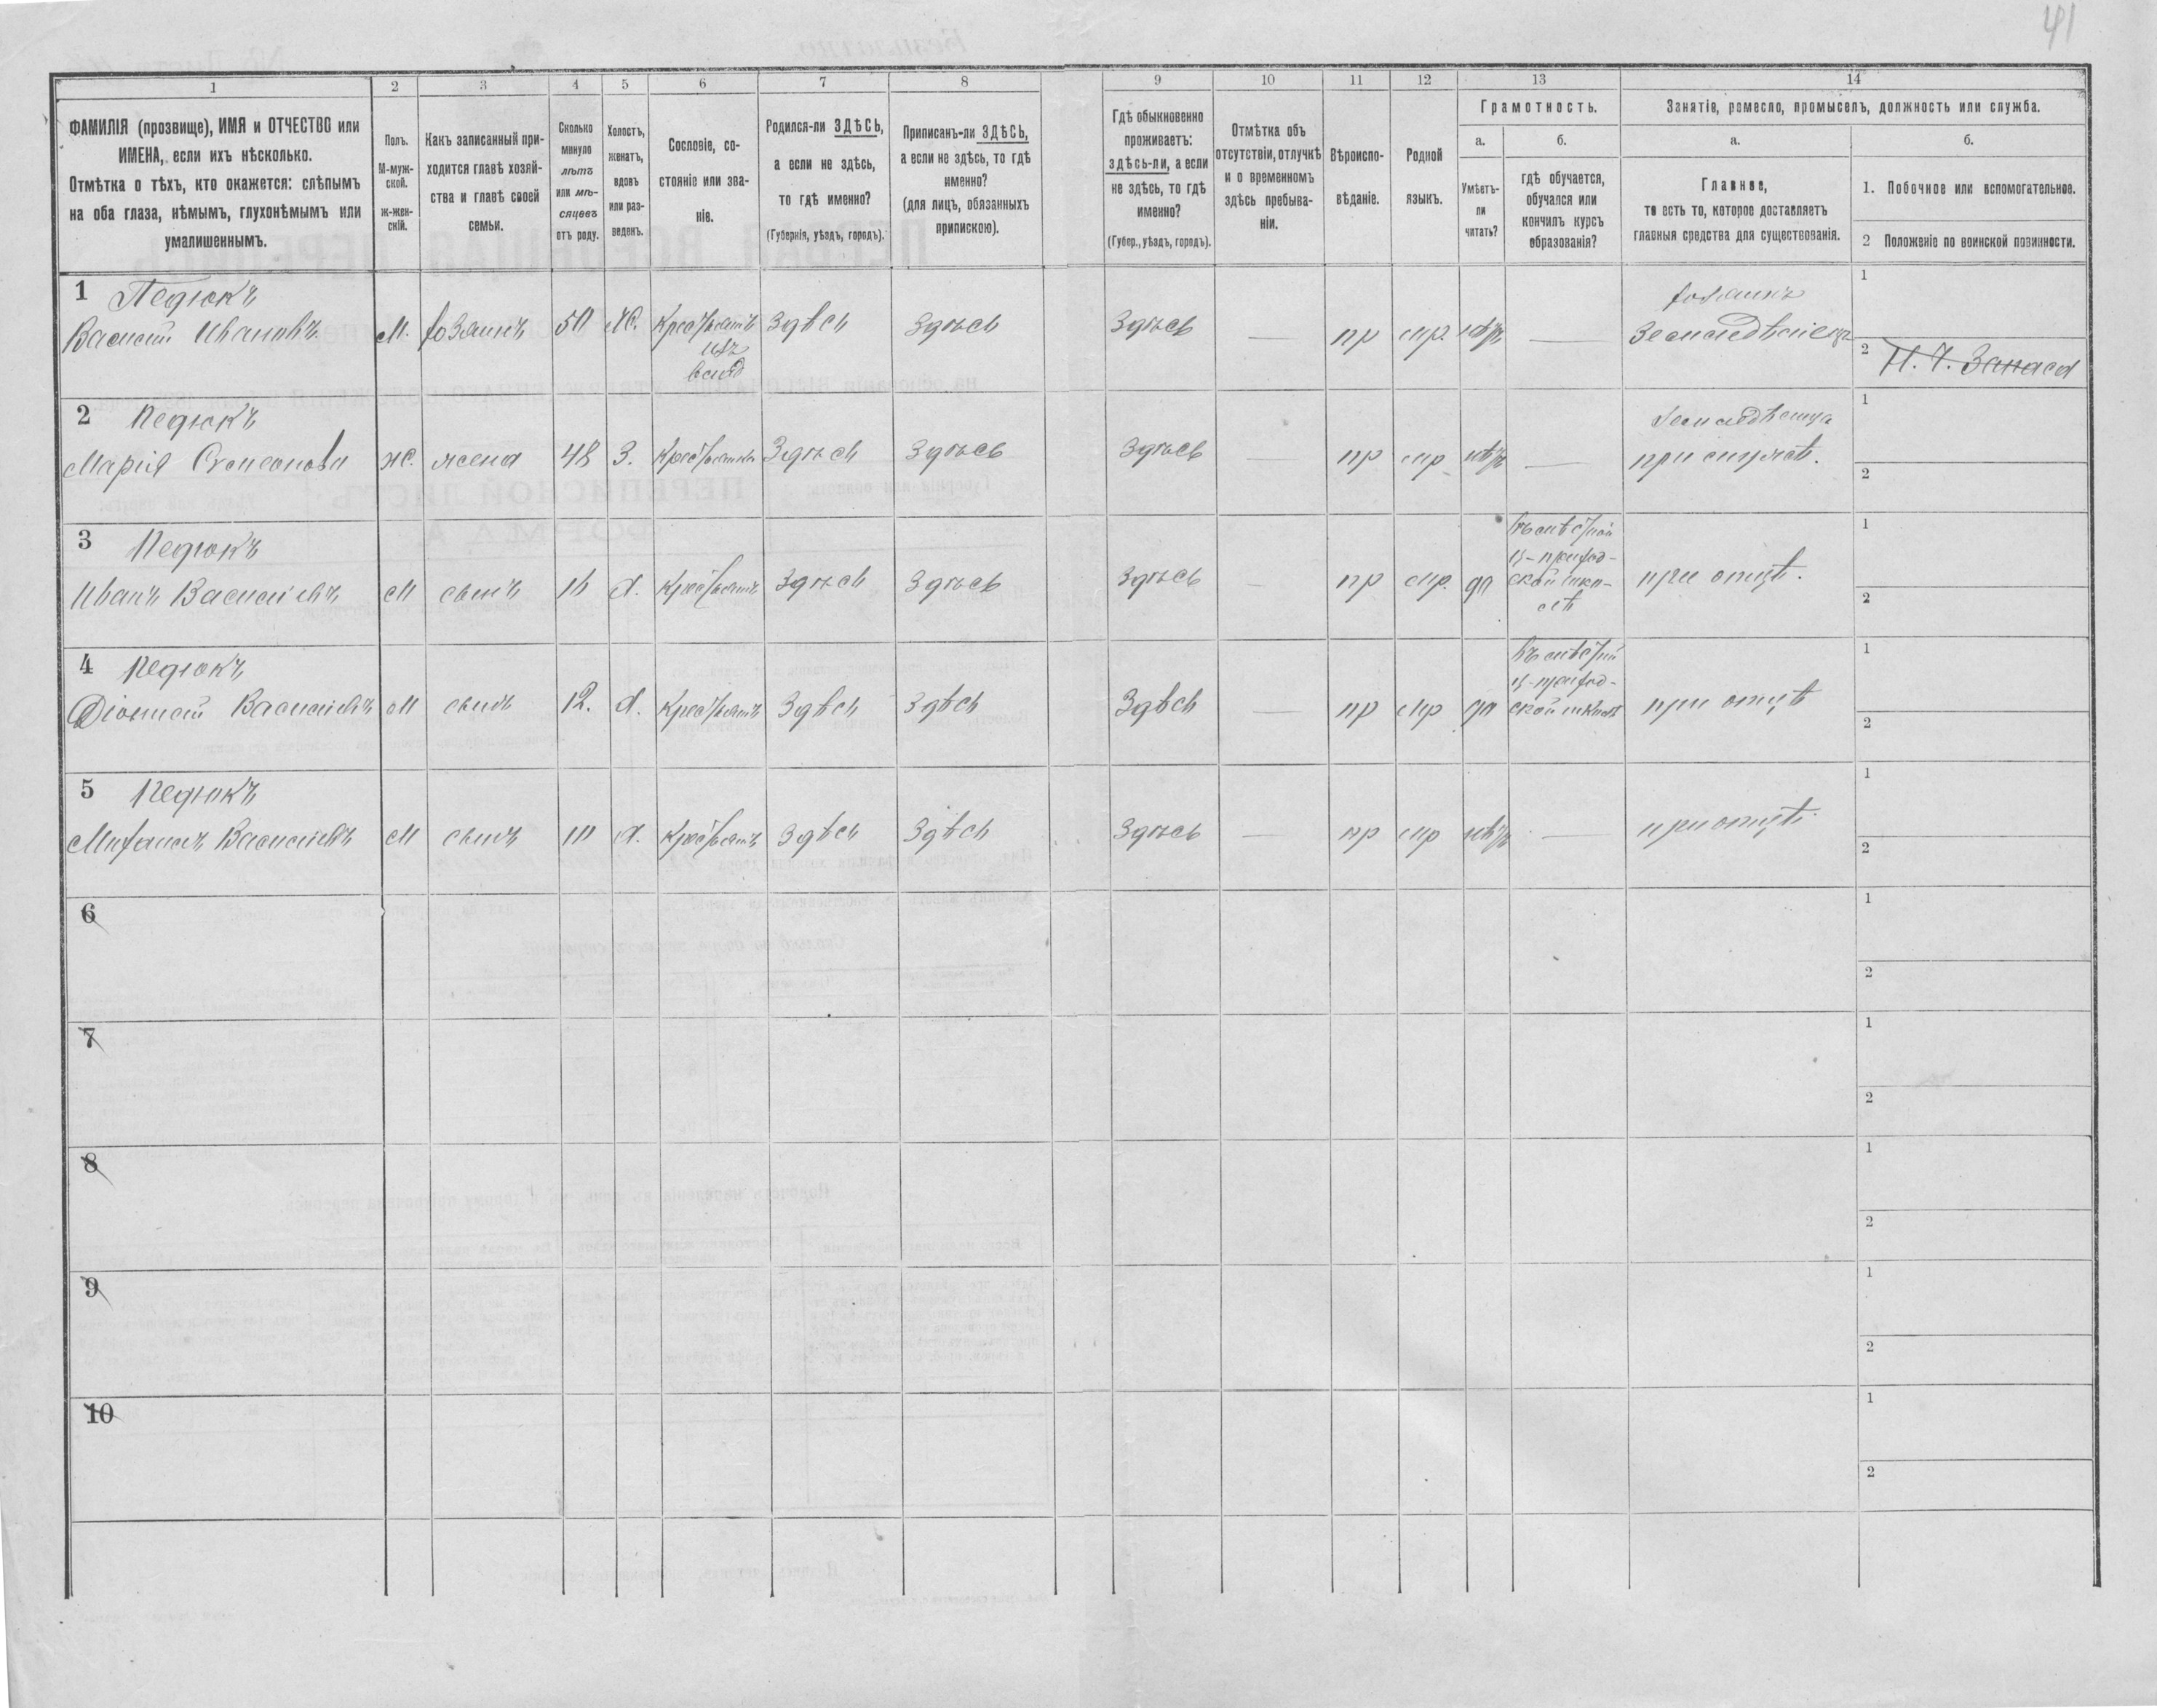 41
1 2 3 4 5 6 7 8 9 10 11 12 13 14
ФАМИЛІЯ (прозвище), ИМЯ и ОТЧЕСТВО или
ИМЕНА, если ихъ нѣсколько.
Отмѣтка о тѣхъ, кто окажется: слѣпымъ
на оба глаза, нѣмымъ, глухонѣмымъ или
умалишеннымъ.
Полъ.
М-муж-
ской.
ж-жен-
скій.
Какъ записанный при-
ходится главѣ хозяй-
ства и главѣ своей
семьи.
Сколько
минуло
лѣтъ
или мѣ-
сяцевъ
отъ роду.
Холостъ,
женатъ,
вдовъ
или раз-
веденъ.
Сословіе, со-
стояніе или зва-
ніе.
Родился-ли ЗДѢСЬ,
а если не здѣсь,
то гдѣ именно?
(Губернія, уѣздъ, городъ).
Приписанъ-ли ЗДѢСЬ,
а если не здѣсь, то гдѣ
именно?
(для лицъ, обязанныхъ
припискою).
Гдѣ обыкновенно
проживаетъ:
здѣсь-ли, а если
не здѣсь, то гдѣ
именно?
(Губер., уѣздъ, городъ).
Отмѣтка объ
отсутствіи, отлучкѣ
и о временномъ
здѣсь пребыва-
ніи.
Вѣроиспо-
вѣданіе.
Родной
языкъ.
Грамотность.
а.
Умѣетъ-
ли
читать?
б.
гдѣ обучается,
обучался или
кончилъ курсъ
образованія?
Занятіе, ремесло, промыселъ, должность или служба.
а.
Главное,
то есть то, которое доставляетъ
главныя средства для существованія.
б.
1. Побочное или вспомогательное.
2 Положеніе по воинской повинности.
1 Педюкъ
Василій Ивановъ М. хозяинъ 50 Ж. Крестьянинъ
изъ
влад
Здѣсь Здѣсь Здѣсь — пр мр. нѣтъ —
хозяинъ
Земледѣлецъ
1
2 Н. Ч. Запаса
2 Педюкъ
Марія Ж. жена 48 З. Крестьянка Здѣсь Здѣсь Здѣсь — пр мр нѣтъ —
земледѣлица
при мужѣ.
1
2
3 Педюкъ
Иванъ Васильевъ М сынъ 16 Х. Крестьянинъ Здѣсь Здѣсь Здѣсь — пр мр. да
въ мѣстной
ц-приход-
ской шко-
лѣ
при отцѣ.
1
2
4 Педюкъ
Діонисій Васильевъ М сынъ 12. Х. Крестьянинъ Здѣсь Здѣсь Здѣсь — пр мр да
въ мѣстной
ц-приход-
ской школѣ
при отцѣ
1
2
5 Педюкъ
Михаилъ Васильевъ М сынъ 10 Х. Крестьянинъ Здѣсь Здѣсь Здѣсь — пр мр нѣтъ —
при отцѣ.
1
2
6
1
2
7
1
2
8
1
2
9
1
2
10
1
2